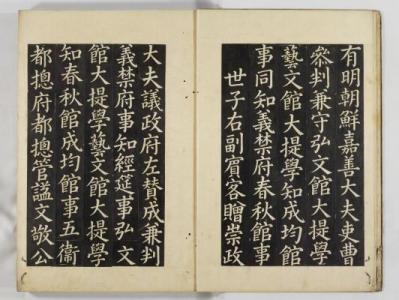 有明朝鮮嘉善大夫吏曹
叅判兼守弘文館大提學
藝文館大提學知成均館
事同知義禁府春秋館事
世子右副賓客贈崇政
大夫議政府左贊成兼判
義禁府事知經筵事弘文
館大提學藝文館大提學
知春秋館成均館事五衞
都摠府都摠管謚文敬公